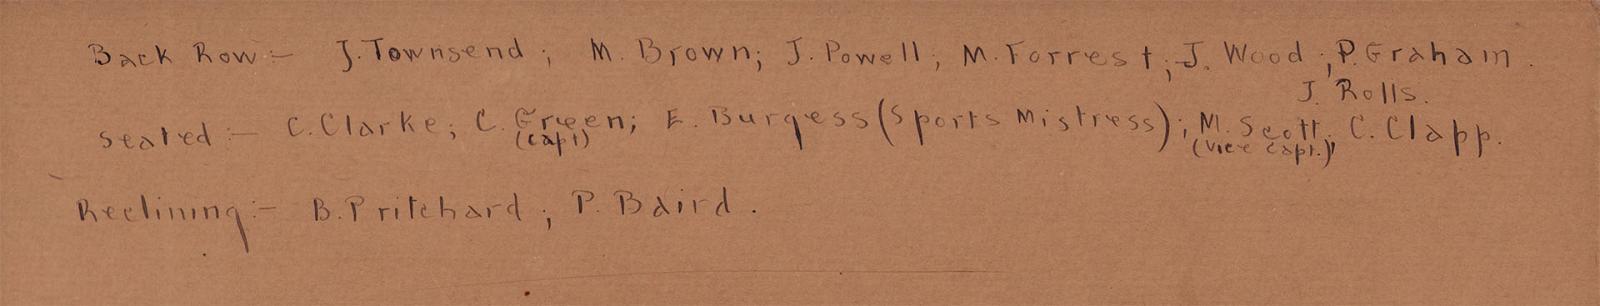 Back Row:- J. Townsend; M. Brown; J. Powell; M. Forrest; J. Wood; P. Graham.
J. Rolls.
Seated:- C. Clarke; C. Green; E. Burgess (Sports Mistress); M. Scott; C. Clapp.
(Capt) (Vice Capt.)
Reclining:- B. Pritchard; P. Baird.